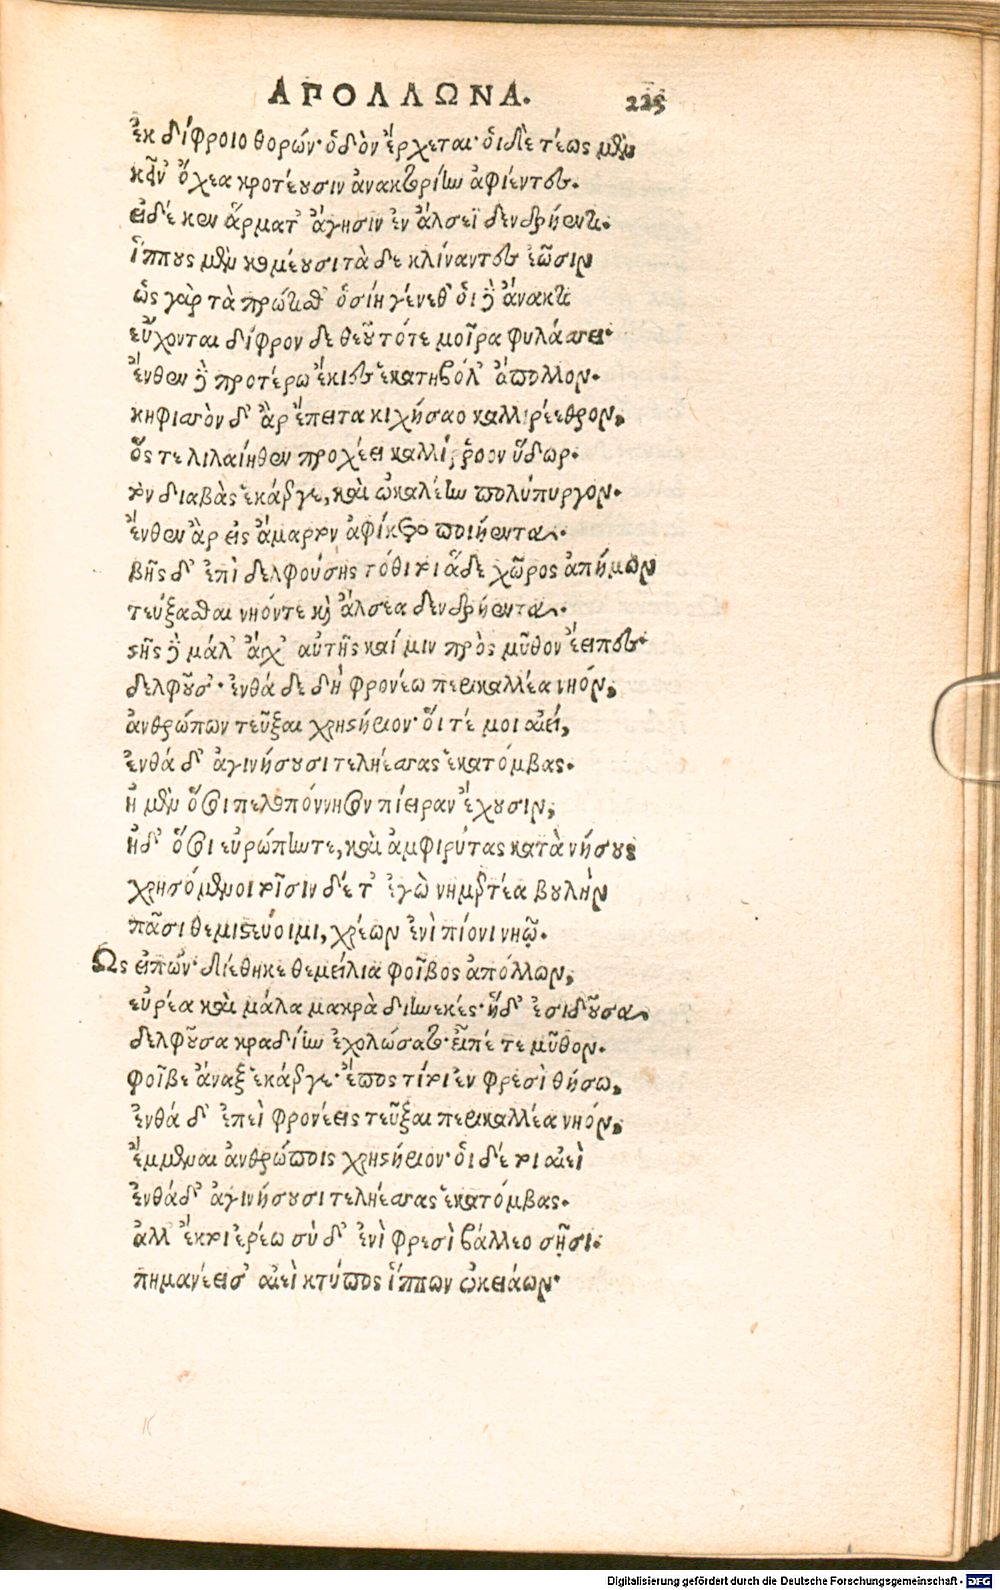 ΑΠΟΛΛΩΝΑ. 225
ἐκ δίφροιο θορών· ὁδὸν ἔρχεται· οἱ δὲ τέως μὲν
κεῖν' ὄχεα κροτέουσιν ἀνακτορίην ἀφιέντες.
εἰ δέ κεν ἅρματ' ἄγησιν ἐν ἄλσεϊ δενδρήεντι.
ἵππους μὲν κομέουσι τὰ δὲ κλίναντες ἐῶσιν
ὣς γὰρ τὰ πρώτισθ' ὁσίη γένεθ' οἱ δὲ ἄνακτι
εὔχονται δίφρον δὲ θεοῦ τότε μοῖρα φυλάσσει·
ἔνθεν δὲ προτέρω ἔκιες ἑκατηβόλ' ἄπολλον.
κηφισσὸν δ' ἂρ ἔπειτα κιχήσαο καλλιρέεθρον,
ὅς τε λιλαίηθεν προχέει καλλίῤῥοον ὕδωρ.
τὸν διαβὰς ἑκάεργε, καὶ ὠκαλέην πολύπυργον.
ἔνθεν ἂρ εἰς ἅμαρτον ἀφίκεο ποιήεντα.
βῆς δ' ἐπὶ δελφούσης τόθι τοι ἅδε χῶρος ἀπήμων
τεύξασθαι νηόν τε καὶ ἄλσεα δενδρήεντα.
στῆς δὲ μάλ' ἄγχ' αὐτῆς καί μιν πρὸς μῦθον ἔειπες·
δελφοῦσ'· ἐνθά δε δὴ φρονέω περικαλλέα νηόν,
ἀνθρώπων τεῦξαι χρηστήριον· οἵ τέ μοι αἰεί,
ἐνθά δ' ἀγινήσουσι τεληέσσας ἑκατόμβας.
ἠ μὲν ὅσοι πελοπόννησον πίειραν ἔχουσιν,
ἠδ' ὅσοι εὐρώπην τε, καὶ ἀμφιρύτας κατὰ νήσους
χρησόμενοι τοῖσιν δέ τ' ἐγὼ νημερτέα βουλὴν
πᾶσι θεμιστεύοιμι, χρέων ἐνὶ πίονι νηῷ.
Ὣς εἰπών· διέθηκε θεμείλια φοῖβος ἀπόλλων,
εὐρέα καὶ μάλα μακρὰ διηνεκές· ἡδ' ἐσιδοῦσα
δελφοῦσα κραδίην ἐχολώσατο· εἶπέ τε μῦθον.
φοῖβε ἄναξ ἑκάεργε· ἔπος τί τοι ἐν φρεσὶ θήσω,
ἐνθά δ' ἐπεὶ φρονέεις τεῦξαι περικαλλέα νηόν,
ἔμμεναι ἀνθρώποις χρηστήριον· οἱ δέ τοι αἰεὶ
ἐνθάδ' ἀγινήσουσι τεληέσσας ἑκατόμβας.
ἀλλ' ἔκ τοι ἐρέω σὺ δ' ἐνὶ φρεσὶ βάλλεο σῇσι.
πημανέεισ' αἰεὶ κτύπος ἵππων ὠκειάων·
Digitalisierung gefördert durch die Deutsche Forschungsgemeinschaft - DFG